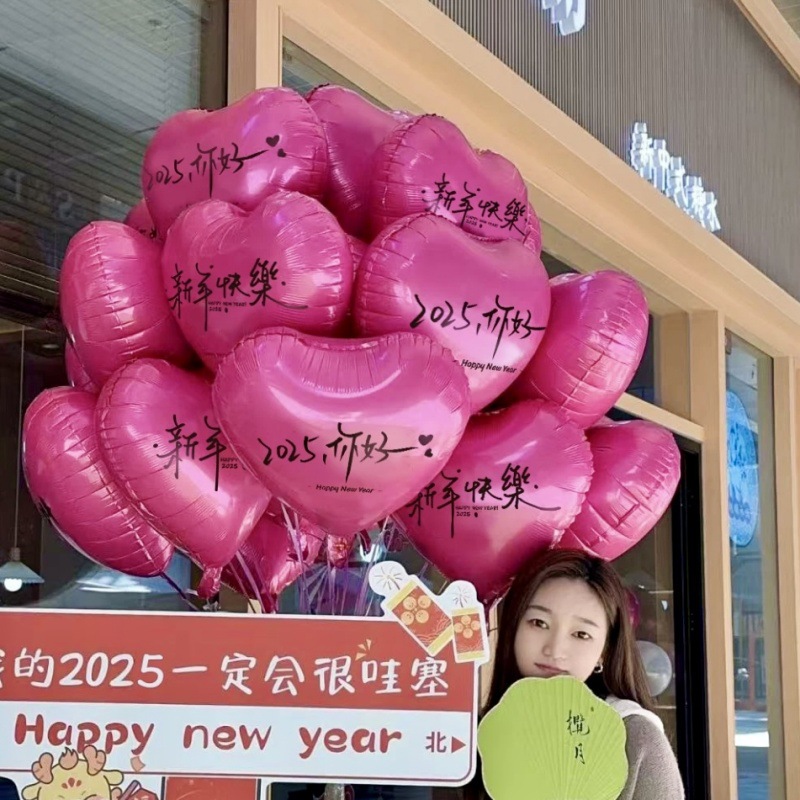 2025,你好
新年快樂
HAPPY NEW YEAR!
新年快樂
HAPPY NEW YEAR!
2025
2025,你好
Happy New Year
新年
HAPPY
2025
2025,你好
Happy New Year
新年快樂
HAPPY NEW YEAR!
2025
的2025一定会很哇塞
Happy new year
北
攬月